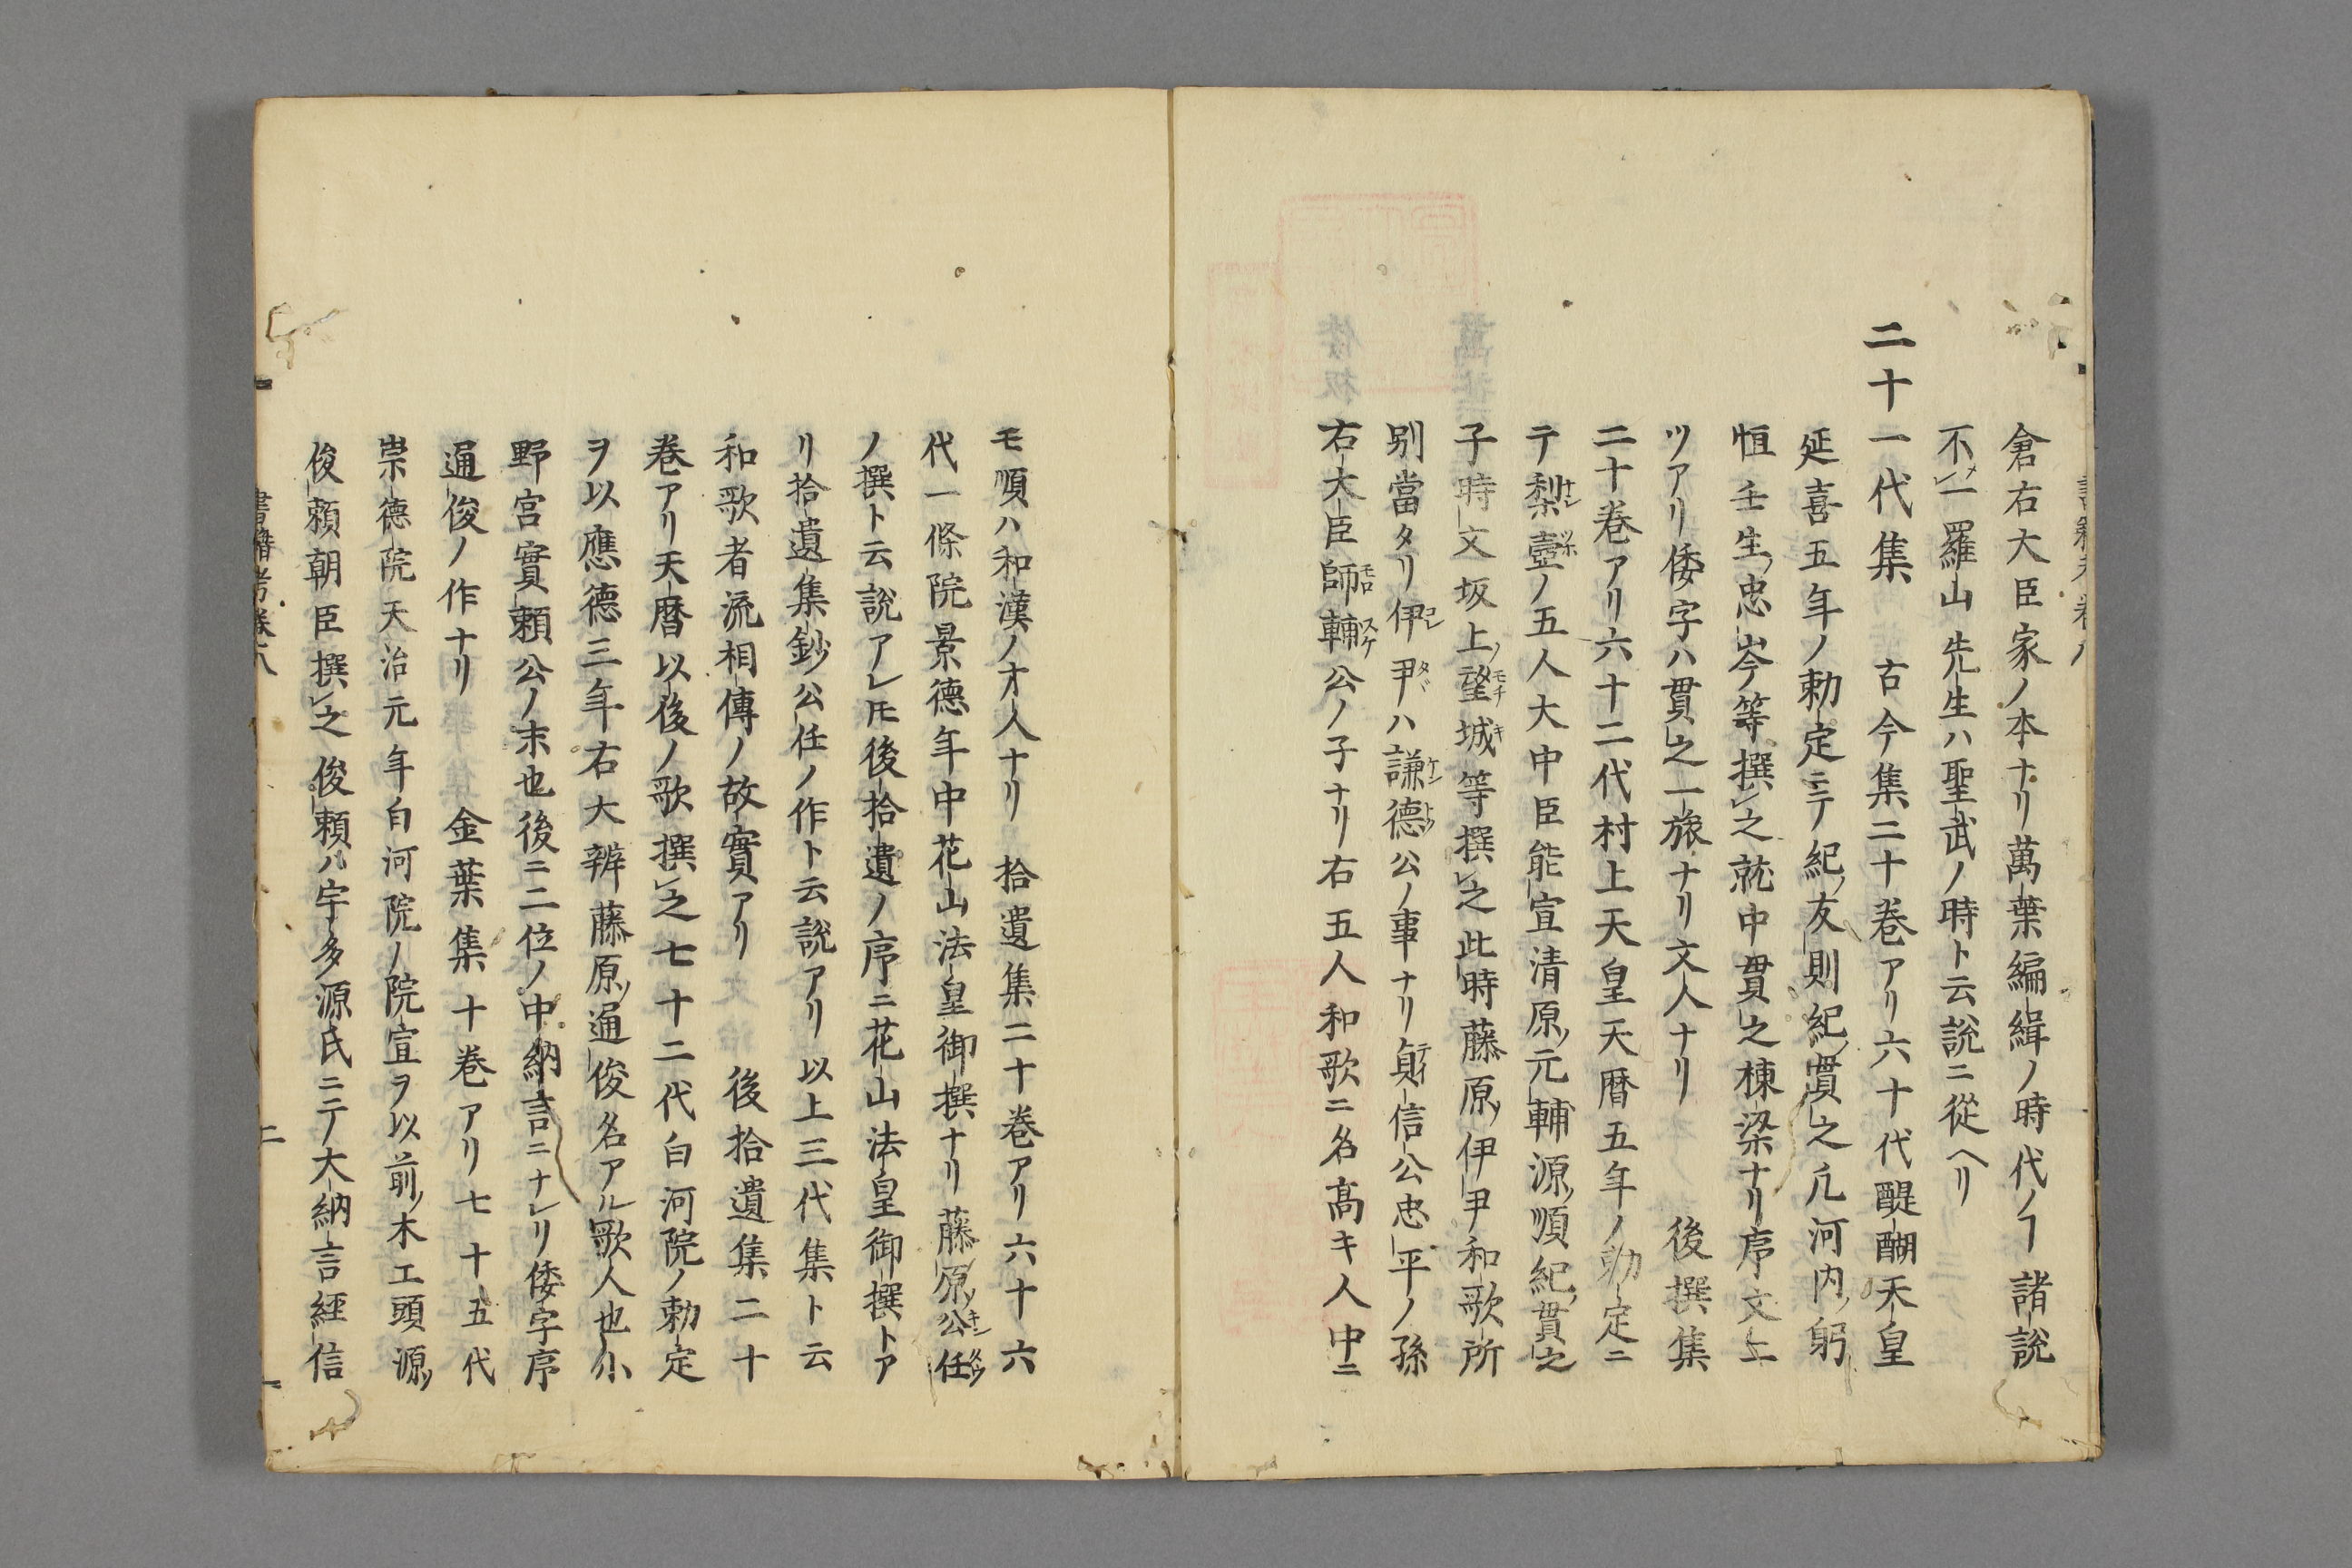 倉右大臣家ノ本ナリ萬葉編緝ノ時代ノヿ諸説
不一羅山先生ハ聖武ノ時ト云説ニ從ヘリ
二十一代集　古今集二十巻アリ六十代醍醐天皇
延喜五年ノ勅定ニテ紀ノ友則紀ノ貫之凡河内ノ躬
恒壬生ノ忠岑等撰之就中貫之棟梁ナリ序文二
ツアリ倭字ハ貫之一旅ナリ文人ナリ　後撰集
二十巻アリ六十二代村上天皇天暦五年ノ勅定ニ
テ梨壺ノ五人大中臣能宣清原ノ元輔源ノ順紀ノ貫之
子時文坂上ノ望城等撰之此時藤原ノ伊尹和歌所
別當タリ伊尹ハ謙德公ノ事ナリ貞信公忠平ノ孫
右大臣師輔公ノ子ナリ右五人和歌ニ名高キ人中ニ
モ順ハ和漢ノ才人ナリ　拾遺集二十巻アリ六十六
代一條院景德年中花山法皇御撰ナリ藤原ノ公任
ノ撰ト云説アレ𪜈後拾遺ノ序ニ花山法皇御撰トア
リ拾遺集鈔公任ノ作ト云説アリ以上三代集ト云
和歌者流相傳ノ故實アリ　後拾遺集二十
巻アリ天暦以後ノ歌撰之七十二代白河院ノ勅定
ヲ以應德三年右大辨藤原ノ通俊名アル歌人也小
野宮實頼公ノ末也後ニ二位ノ中納言ニナレリ倭字序
通俊ノ作ナリ　金葉集十巻アリ七十五代
崇德院天治元年白河院ノ院宣ヲ以前ノ木工頭源ノ
俊頼朝臣撰之俊頼ハ宇多源氏ニテ大納言經信
書籍考巻八
二